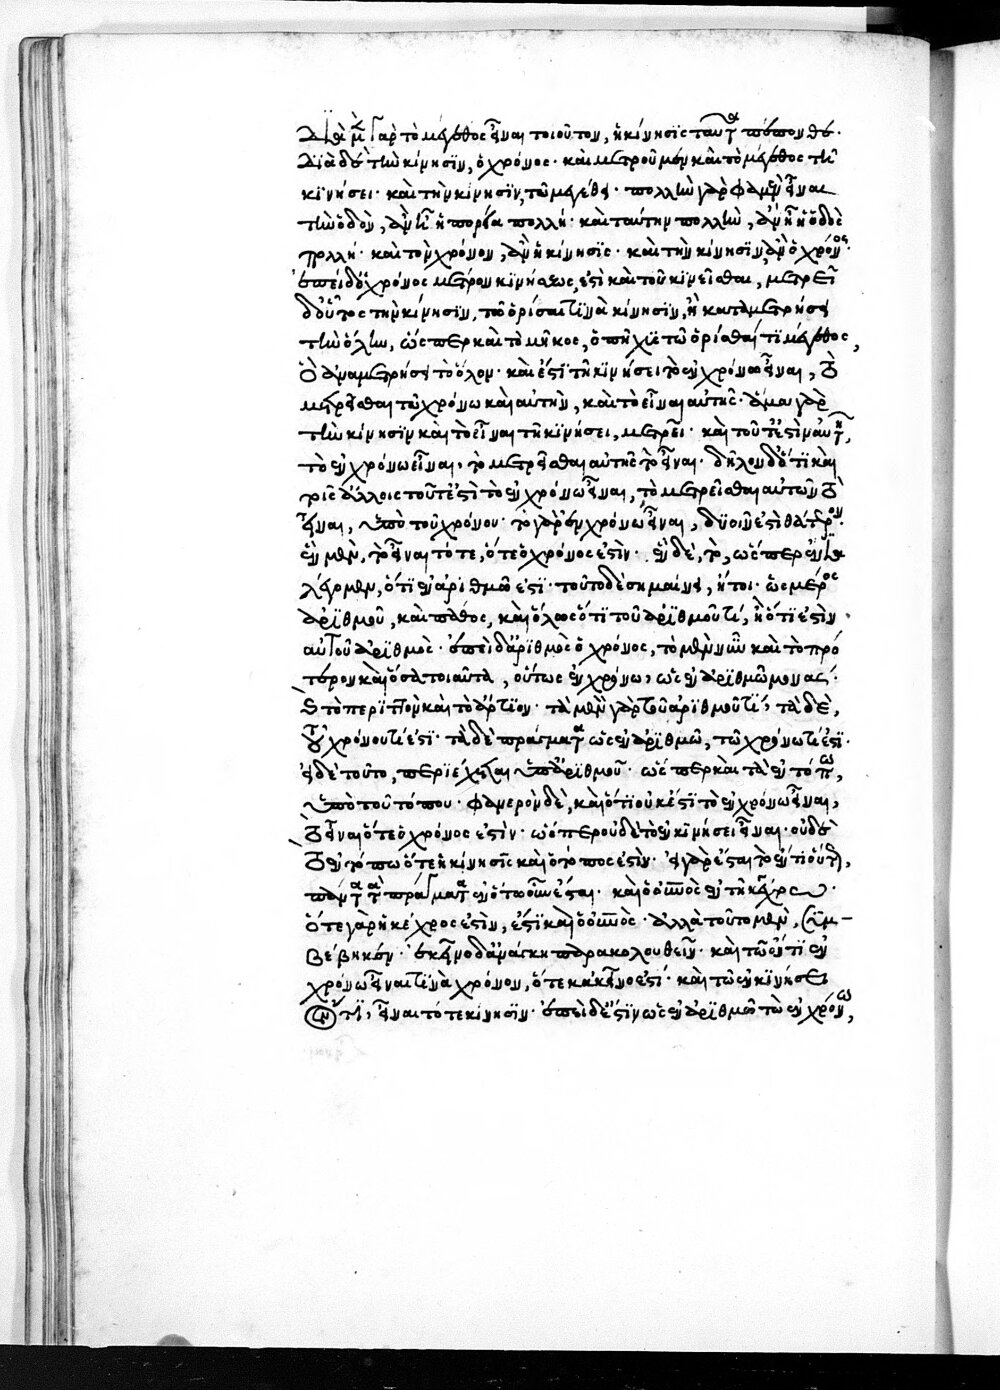 διὰ μὲν γὰρ τὸ μέγεθος εἶναι τοιοῦτον, ἡ κίνησις ταῦτα πέπονθε·
διὰ δὲ τὴν κίνησιν, ὁ χρόνος· καὶ μετροῦμεν καὶ τὸ μέγεθος τῆ
κινήσει· καὶ τὴν κίνησιν, τῶ μεγέθει· πολλὴν γὰρ φαμὲν εἶναι
τὴν ὁδὸν, ἀν ἦ ἡ πορεία πολλή· καὶ ταύτην πολλὴν, ἀν ἦ ἡ ὁδὸς
πολλή· καὶ τὸν χρόνον, ἀν ἡ κίνησις· καὶ τὴν κίνησιν, ἀν ὁ χρόνος·
ἐπεὶ δ' ὁ χρόνος μέτρον κινήσεως, ἐστὶ καὶ τοῦ κινεῖσθαι, μετρεῖ
δ' οὗτος τὴν κίνησιν, τῶ ὁρίσαι τινὰ κίνησιν, ἣ καταμετρήσει
τὴν ὅλην, ὥσπερ καὶ τὸ μῆκος, ὁ πῆχις τῶ ὁρίσθαί τι μέγεθος,
ὃ ἀναμετρήσει τὸ ὅλον· καὶ ἔστι τῆ κινήσει τὸ ἐν χρόνω εἶναι, τὸ
μετρεῖσθαι τῶ χρόνω καὶ αὐτὴν, καὶ τὸ εἶναι αὐτῆς· ἅμα γὰρ
τὴν κίνησιν καὶ τὸ εἶναι τῆ κινήσει, μετρεῖ· καὶ τοῦτ' ἔστιν αὐτῆ,
τὸ ἐν χρόνω εἶναι, τὸ μετρεῖσθαι αὐτῆς τὸ εἶναι· δῆλον δ' ὅτι καὶ
τοῖς ἄλλοις τοῦτ' ἐστὶ τὸ ἐν χρόνω εἶναι, τὸ μετρεῖσθαι αὐτῶν τὸ
εἶναι, ὑπὸ τοῦ χρόνου· τὸ γὰρ ἐν χρόνω εἶναι, δυοῖν ἐστὶ θάτερον·
ἓν μὲν, τὸ εἶναι τότε, ὅτε ὁ χρόνος ἐστὶν· ἓν δὲ, τὸ, ὥσπερ ἔνια
λέγομεν, ὅτι ἐν ἀριθμῶ ἐστι· τοῦτο δὲ σημαίνει, ἤτοι ὡς μέρος
ἀριθμοῦ, καὶ πάθος, καὶ ὅλως ὅτι τοῦ ἀριθμοῦ τί, ἢ ὅτι ἐστὶν
αὐτοῦ ἀριθμὸς· ἐπεὶ δ' ἀριθμὸς ὁ χρόνος, τὸ μὲν νῦν καὶ τὸ πρό
τερον καὶ ὅσα τοιαῦτα, οὕτως ἐν χρόνω, ὡς ἐν ἀριθμῶ μονὰς·
καὶ τὸ περιττὸν καὶ τὸ ἄρτιον· τὰ μὲν γὰρ τοῦ ἀριθμοῦ τί, τὰ δὲ,
τοῦ χρόνου τί ἐστι· τὰ δὲ πράγματα ὡς ἐν ἀριθμῶ, τῶ χρόνω τί ἐστι·
εἰ δὲ τοῦτο, περιέχεται ὑπ' ἀριθμοῦ· ὥσπερ καὶ τὰ ἐν τόπω,
ὑπὸ τοῦ τόπου· φανερὸν δὲ, καὶ ὅτι οὐκ ἔστι τὸ ἐν χρόνω εἶναι,
τὸ εἶναι ὅτε ὁ χρόνος ἐστὶν· ὥσπερ οὐδὲ τὸ ἐν κινήσει εἶναι· οὐδὲ
τὸ ἐν τόπω ὅτε ἡ κίνησις καὶ ὁ τόπος ἐστὶν· εἰ γὰρ ἔσται τὸ ἔν τι οὕτω,
πάντα τὰ πράγματα ἐν ὁτωοῦν ἔσται· καὶ ὁ οὐρανὸς ἐν τῆ κέγχρω·
ὅτε γὰρ ἡ κέγχρος ἐστὶν, ἔστι καὶ ὁ οὐρανὸς· ἀλλὰ τοῦτο μὲν, συμ-
βέβηκεν· ἐκεῖνο δ' ἀνάγκη παρακολουθεῖν· καὶ τῶ ὄντι ἐν
χρόνω εἶναι τινὰ χρόνον, ὅτε κἀκεῖνο ἐστί· καὶ τῶ ἐν κινήσει
ὄντι, εἶναι τότε κίνησιν· ἐπεὶ δ' ἔστιν ὡς ἐν ἀριθμῶ τὸ ἐν χρόνω,